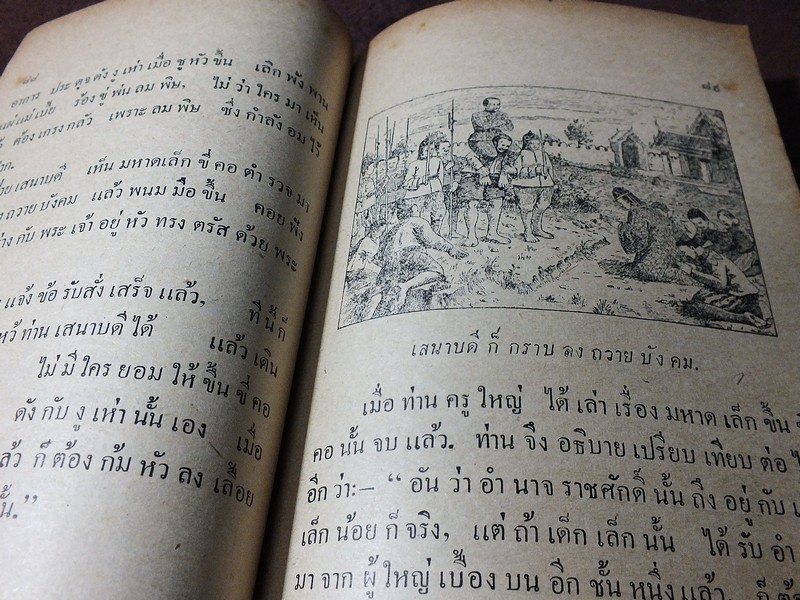 ๘๘
อาการ ประดุจ ดัง งู เห่า เมื่อ ชู หัว ขึ้น เลิก พัง พาน
แผ่ แม่ เบี้ย ร้อง ขู่ พ่น ลม พิษ, ไม่ ว่า ใคร มา เห็น
ต้อง เกรง กลัว เพราะ ลม พิษ ซึ่ง กำลัง อม ไว้
เสนาบดี เห็น มหาดเล็ก ขี่ คอ ตำ รวจ มา
ถวาย บังคม แล้ว พนม มือ ขึ้น คอย ฟัง
กับ พระ เจ้า อยู่ หัว ทรง ตรัส ด้วย พระ
แจ้ง ข้อ รับสั่ง เสร็จ แล้ว, ที นี้ ก็
ท่าน เสนาบดี ได้ แล้ว เดิน
ไม่ มี ใคร ยอม ให้ ขึ้น ขี่ คอ
ดัง กับ งู เห่า นั้น เอง เมื่อ
ก็ ต้อง ก้ม หัว ลง เลื้อย
๘๙
เสนาบดี ก็ กราบ ลง ถวาย บัง คม.
เมื่อ ท่าน ครู ใหญ่ ได้ เล่า เรื่อง มหาด เล็ก ขึ้น
คอ นั้น จบ แล้ว. ท่าน จึง อธิบาย เปรียบ เทียบ ต่อ
อีก ว่า:— “ อัน ว่า อำ นาจ ราชศักดิ์ นั้น ถึง อยู่ กับ
เล็ก น้อย ก็ จริง, แต่ ถ้า เด็ก เล็ก นั้น ได้ รับ อำ
มา จาก ผู้ ใหญ่ เบื้อง บน อีก ชั้น หนึ่ง แล้ว, ก็